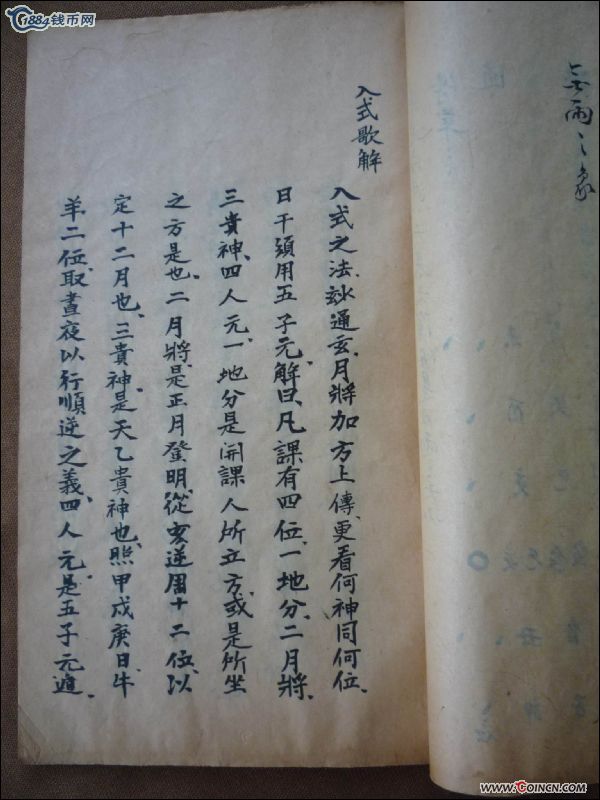 1884钱币网
之象
入式歌解
入式之法妙通玄、月將加方上傳、更看何神同何位、
日干頭用五子元、解曰、凡課有四位、一地分、二月將、
三貴神、四人元、一地分是開課人所立方、或是所坐
之方是也、二月將是正月登明、從亥逆周十二位、以
定十二月也、三貴神是天乙貴神也、照甲戊庚日牛
羊二位、取晝夜以行順逆之義、四人元、是五子元遁、
WWW.COINCN.COM